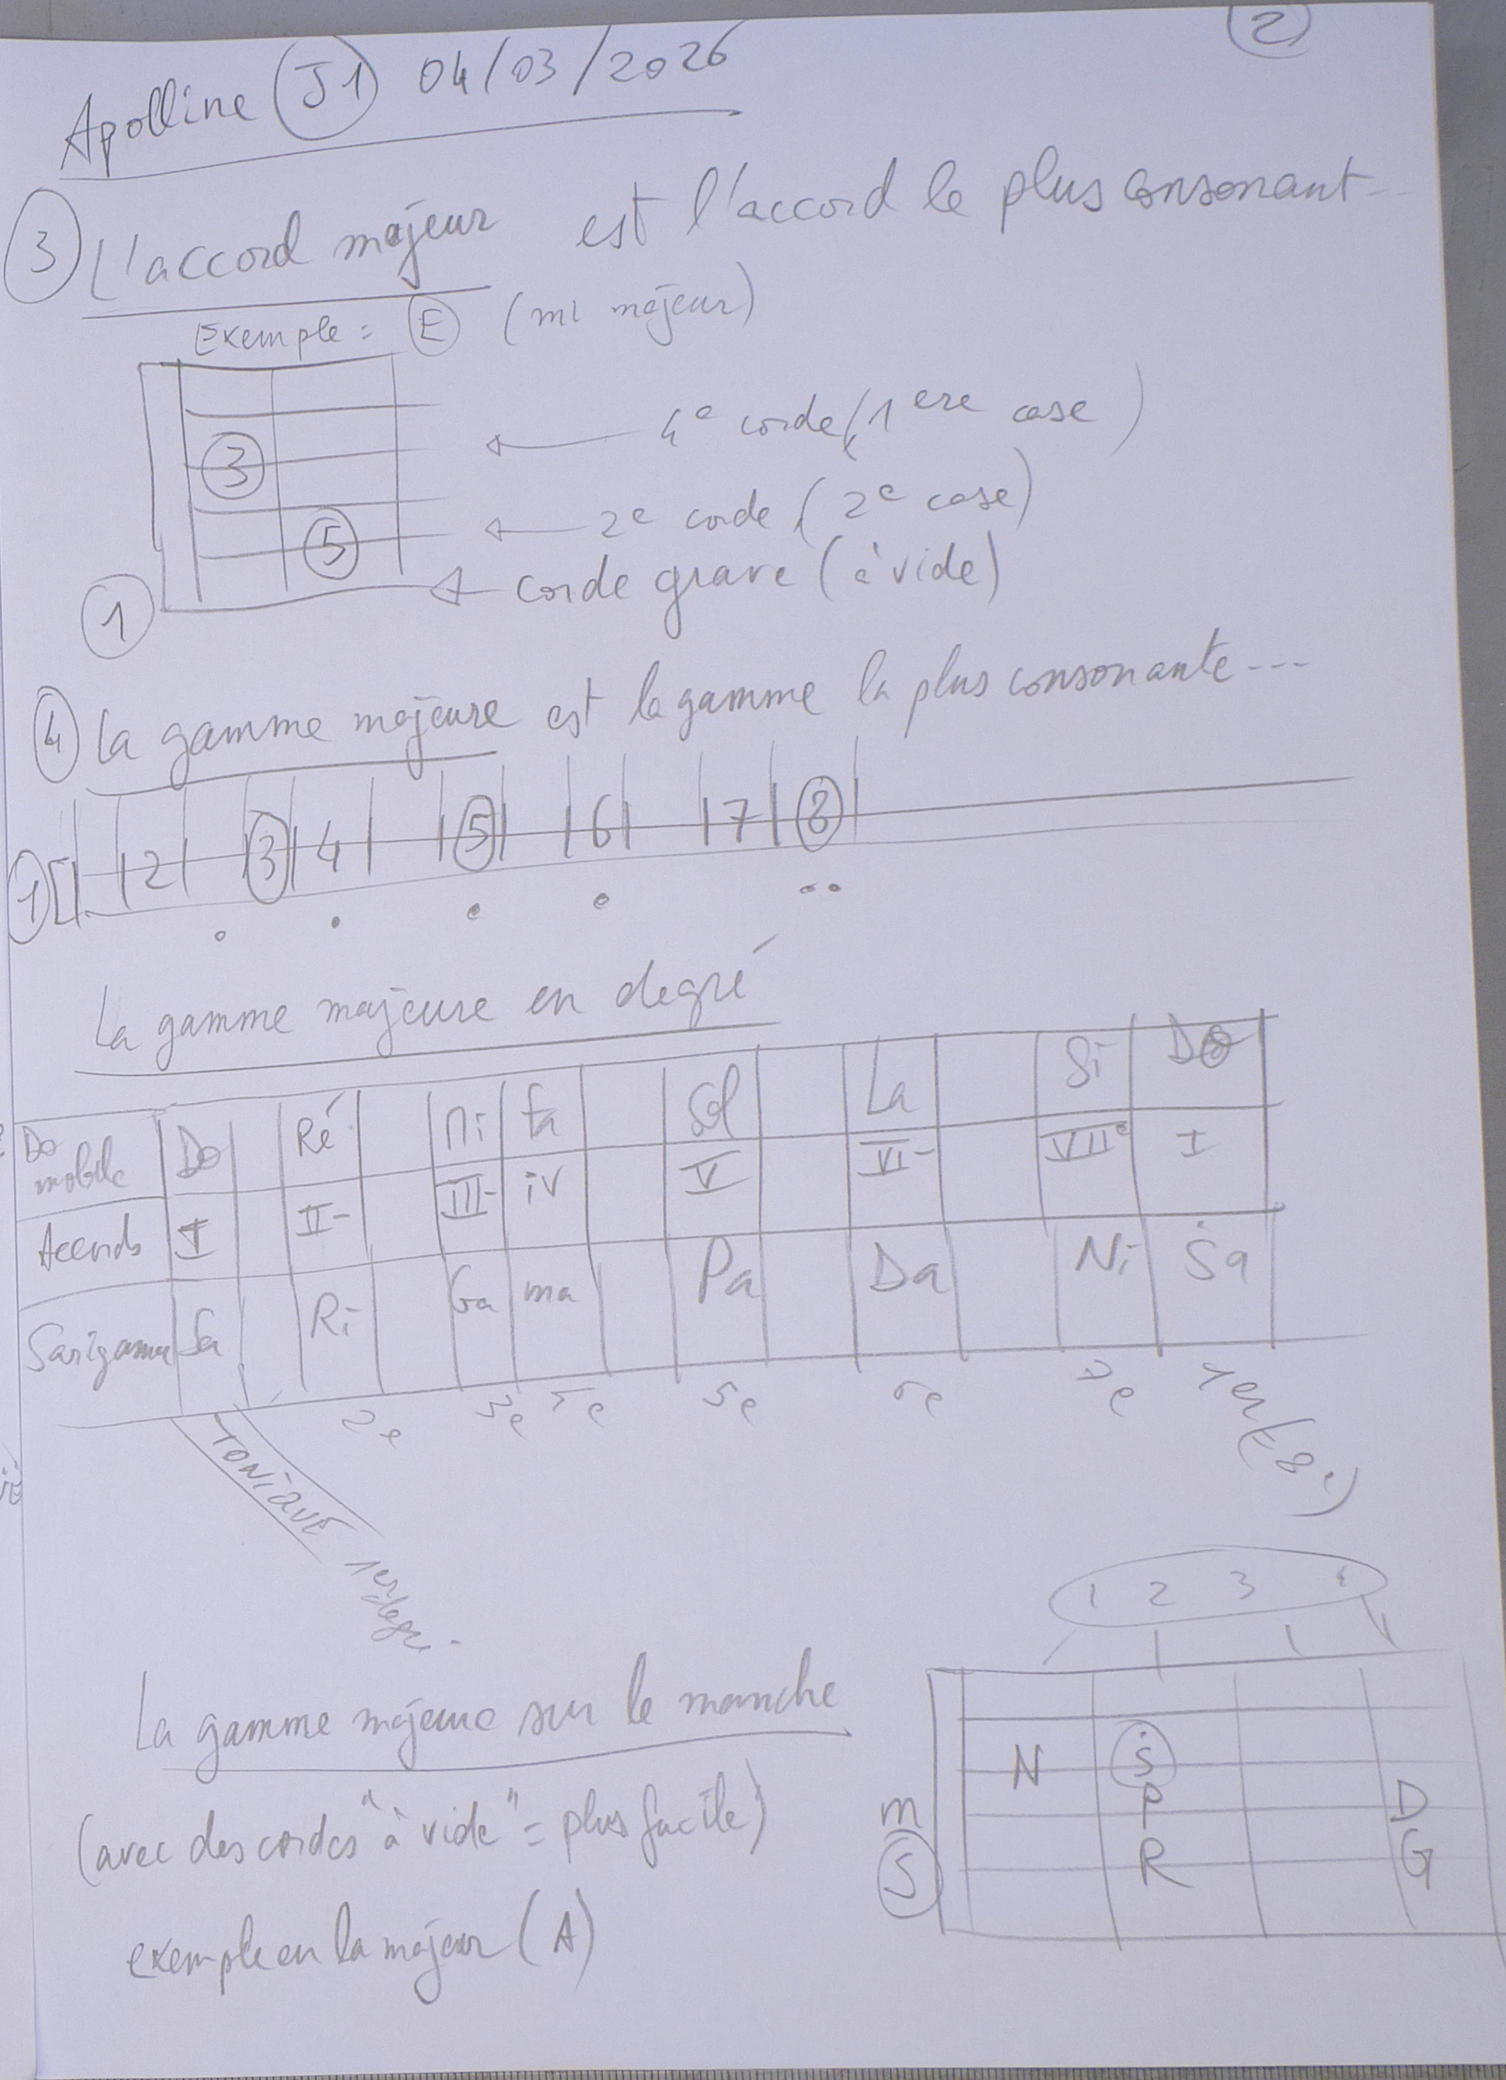 2
Apolline J1 04/03/2026
3 L'accord majeur est l'accord le plus consonant...
Exemple = E (mi majeur)
4e corde (1ere case)
3
2e corde (2e case)
5
corde grave (à vide)
1
4 La gamme majeure est la gamme la plus consonante...
1 2 3 4 5 6 7 8
La gamme majeure en degré
Do mobile Do Ré Mi Fa Sol La Si Do
Accords I II- III- iV V VI- VII° I
Sarigama Sa Ri Ga ma Pa Da Ni Ṡa
2e 3e 5e 6e 7e 1er (= 8e)
TONIQUE 1er degré
1 2 3 4
La gamme majeure sur le manche
N Ṡ
(avec des cordes "à vide" = plus facile)
m P D
S R G
exemple en la majeur (A)